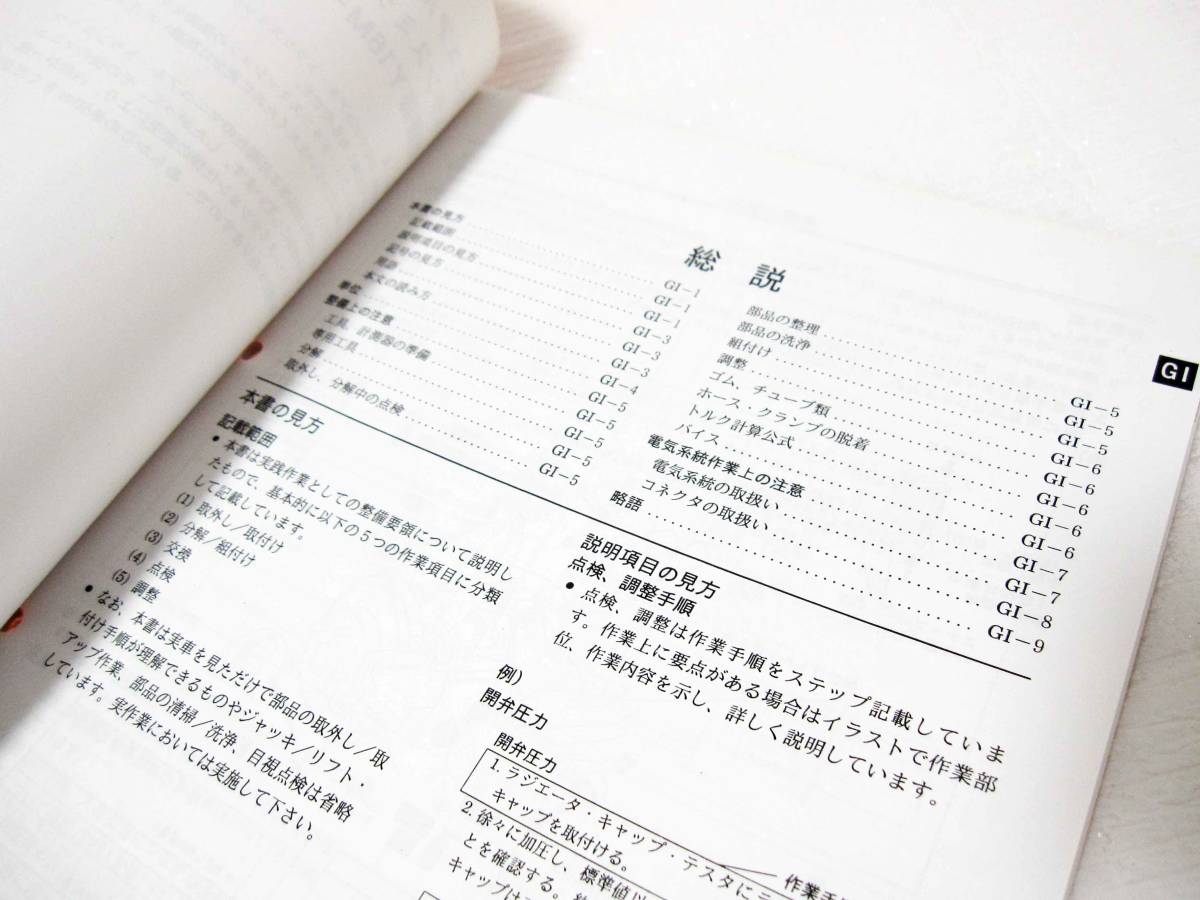 総説
GI
本書の見方 GI-1
記載範囲 GI-1
説明項目の見方 GI-1
記号の見方 GI-3
用語 GI-3
本文の読み方 GI-3
単位 GI-4
整備上の注意 GI-5
工具、計測器の準備 GI-5
専用工具 GI-5
分解 GI-5
取外し、分解中の点検 GI-5
部品の整理 GI-5
部品の洗浄 GI-5
組付け GI-5
調整 GI-6
ゴム、チューブ類 GI-6
ホース・クランプの脱着 GI-6
トルク計算公式 GI-6
バイス GI-7
電気系統作業上の注意 GI-7
電気系統の取扱い GI-7
コネクタの取扱い GI-8
略語 GI-9
本書の見方
記載範囲
●本書は実践作業としての整備要領について説明し
たもので、基本的に以下の5つの作業項目に分類
して記載しています。
(1) 取外し/取付け
(2) 分解/組付け
(3) 交換
(4) 点検
(5) 調整
●なお、本書は実車を見ただけで部品の取外し/取
付け手順が理解できるものやジャッキ/リフト・
アップ作業、部品の清掃/洗浄、目視点検は省略
しています。実作業においては実施して下さい。
説明項目の見方
点検、調整手順
●点検、調整は作業手順をステップ記載していま
す。作業上に要点がある場合はイラストで作業部
位、作業内容を示し、詳しく説明しています。
例)
開弁圧力
開弁圧力
1. ラジエータ・キャップ・テスタに
キャップを取付ける。
作業手
2. 徐々に加圧し、標準値以
とを確認する。
キャップは